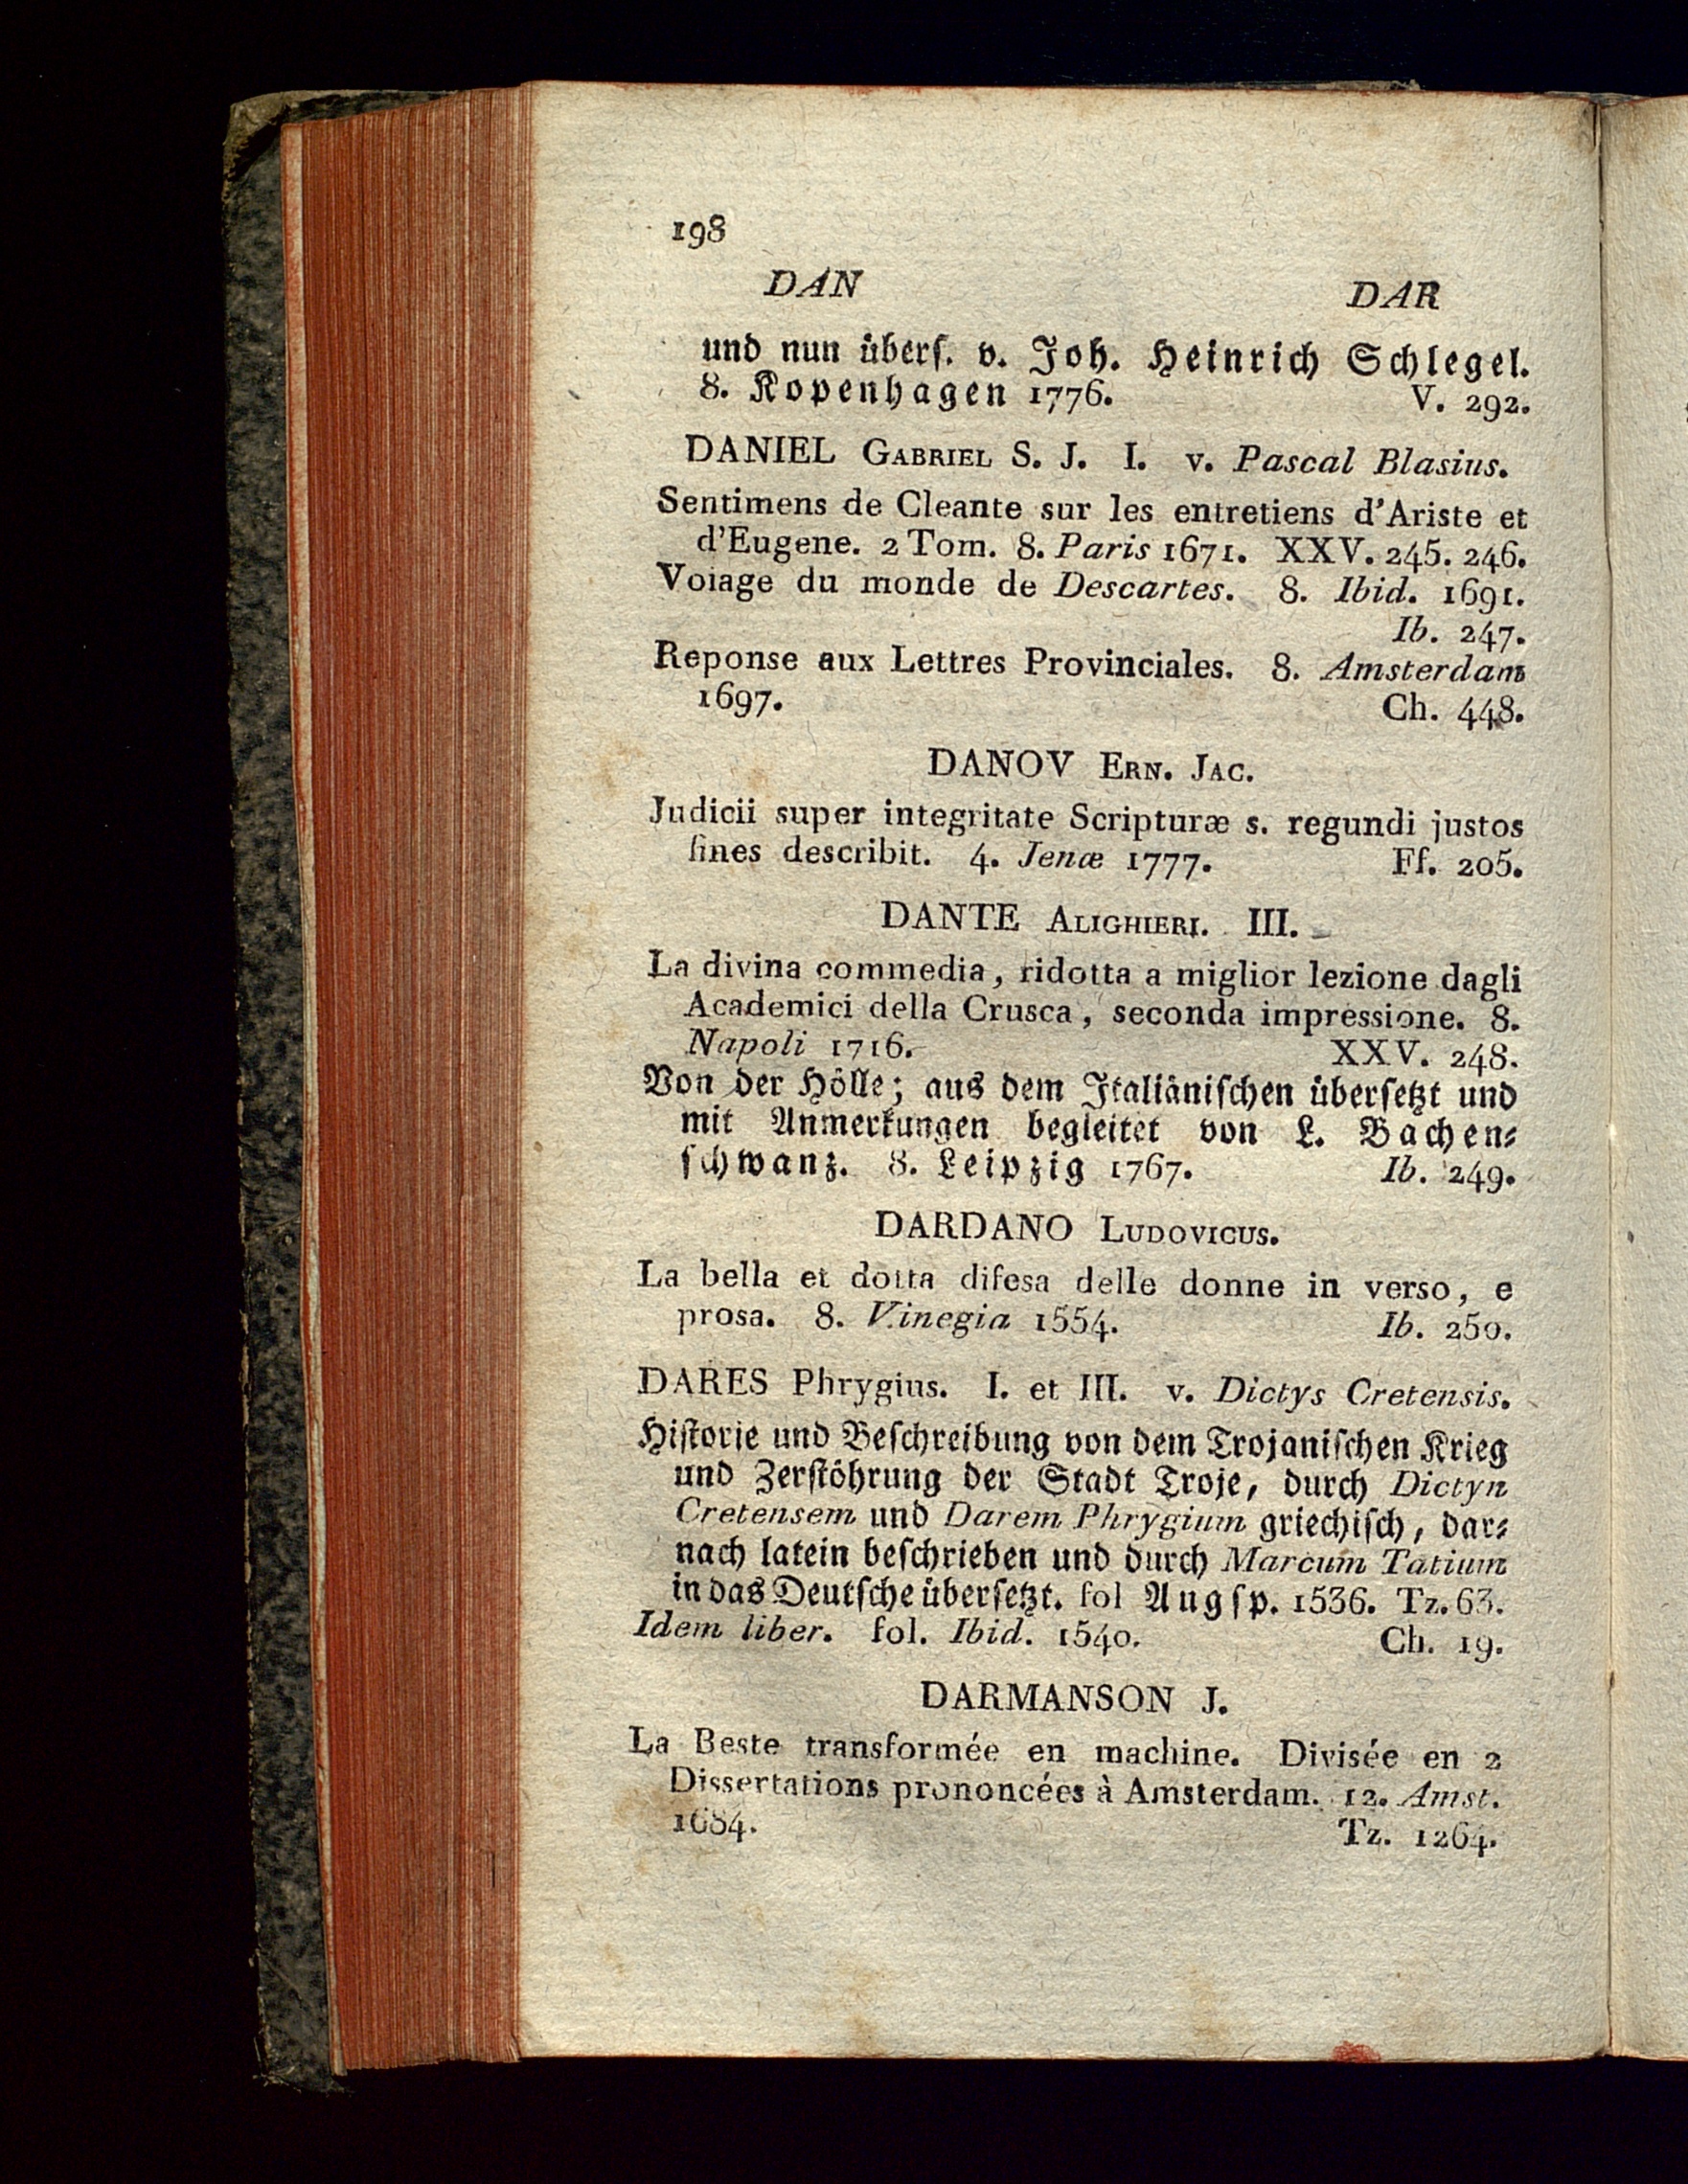 198
DAN DAR
und nun übers. v. Joh. Heinrich Schlegel.
8. Kopenhagen 1776. V. 292.
DANIEL GABRIEL S. J. I. v. Pascal Blasius.
Sentimens de Cleante sur les entretiens d'Ariste et
d'Eugene. 2 Tom. 8. Paris 1671. XXV. 245. 246.
Voiage du monde de Descartes. 8. Ibid. 1691.
Ib. 247.
Reponse aux Lettres Provinciales. 8. Amsterdam
1697. Ch. 448.
DANOV ERN. JAC.
Judicii super integritate Scripturæ s. regundi justos
fines describit. 4. Jenæ 1777. Ff. 205.
DANTE ALIGHIERI. III.
La divina commedia, ridotta a miglior lezione dagli
Academici della Crusca, seconda impressione. 8.
Napoli 1716. XXV. 248.
Von der Hölle; aus dem Italiänischen übersetzt und
mit Anmerkungen begleitet von L. Bachen⸗
schwanz. 8. Leipzig 1767. Ib. 249.
DARDANO LUDOVICUS.
La bella et dotta difesa delle donne in verso, e
prosa. 8. Vinegia 1554. Ib. 250.
DARES Phrygius. I. et III. v. Dictys Cretensis.
Historie und Beschreibung von dem Trojanischen Krieg
und Zerstöhrung der Stadt Troje, durch Dictyn
Cretensem und Darem Phrygium griechisch, dar⸗
nach latein beschrieben und durch Marcum Tatium
in das Deutsche übersetzt. fol Augsp. 1536. Tz. 63.
Idem liber. fol. Ibid. 1540. Ch. 19.
DARMANSON J.
La Beste transformée en machine. Divisée en 2
Dissertations prononcées à Amsterdam. 12. Amst.
1684. Tz. 1264.